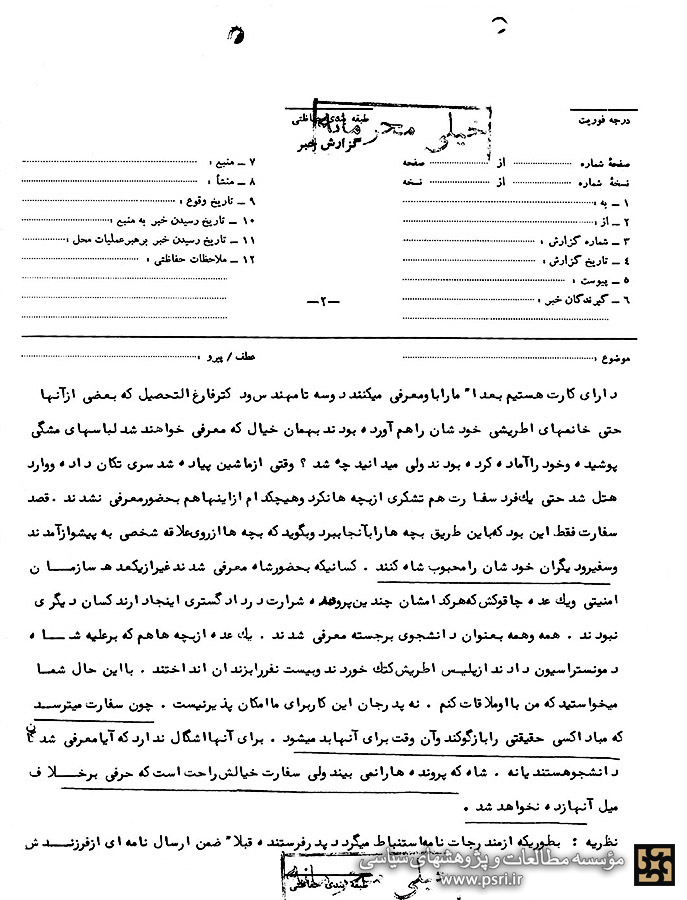 خیلی محرمانه
درجه فوریت
طبقه بندی حفاظتی
گزارش خبر
صفحهٔ شماره از صفحه
نسخهٔ شماره از نسخه
۱ ـ به :
۲ ـ از :
۳ ـ شماره گزارش :
۴ ـ تاریخ گزارش :
۵ ـ پیوست :
۶ ـ گیرندگان خبر :
۷ ـ منبع :
۸ ـ منشأ :
۹ ـ تاریخ وقوع :
۱۰ ـ تاریخ رسیدن خبر به منبع :
۱۱ ـ تاریخ رسیدن خبر برهبر عملیات محل :
۱۲ ـ ملاحظات حفاظتی :
—۲—
موضوع :
عطف / پیرو :
دارای کارت هستیم بعدا" مارا باو معرفی میکنند دوسه تا مهندس ود کتر فارغ التحصیل که بعضی از آنها
حتی خانمهای اطریشی خودشان راهم آورده بودند بهمان خیال که معرفی خواهند شد لباسهای مشگی
پوشیده وخود را آماده کرده بودند ولی میدانید چه شد ؟ وقتی از ماشین پیاده شد سری تکان داده ووارد
هتل شد حتی یك فرد سفارت هم تشکری از بچه ها نکرد وهیچکدام از اینها هم بحضور معرفی نشدند . قصد
سفارت فقط این بود که باین طریق بچه ها را بآنجا ببرد وبگوید که بچه ها از روی علاقه شخصی به پیشواز آمدند
وسفیر ودیگران خودشان را محبوب شاه کنند . کسانیکه بحضور شاه معرفی شدند غیر از یکعده سازمان
امنیتی ویك عده چاقوکش که هرکدامشان چندین پرونده شرارت در دادگستری اینجا دارند کسان دیگری
نبودند . همه وهمه بعنوان دانشجوی برجسته معرفی شدند . یك عده از بچه ها هم که بر علیه شاه
دمونستراسیون دادند از پلیس اطریش کتك خوردند وبیست نفر را بزندان انداختند . با این حال شما
میخواستید که من با او ملاقات کنم . نه پدر جان این کار برای ما امکان پذیر نیست . چون سفارت میترسد
که مبادا کسی حقیقتی را بازگو کند وآن وقت برای آنها بد میشود . برای آنها اشگال ندارد که آیا معرفی شدگان
دانشجو هستند یا نه . شاه که پرونده ها را نمی بیند ولی سفارت خیالش راحت است که حرفی برخلاف
میل آنها زده نخواهد شد .
نظریه : بطوریکه از مندرجات نامه استنباط میگردد پدر فرستنده قبلا" ضمن ارسال نامه ای از فرزندش
مؤسسه مطالعات و پژوهشهای سیاسی
www.psri.ir
طبقه بندی حفاظتی